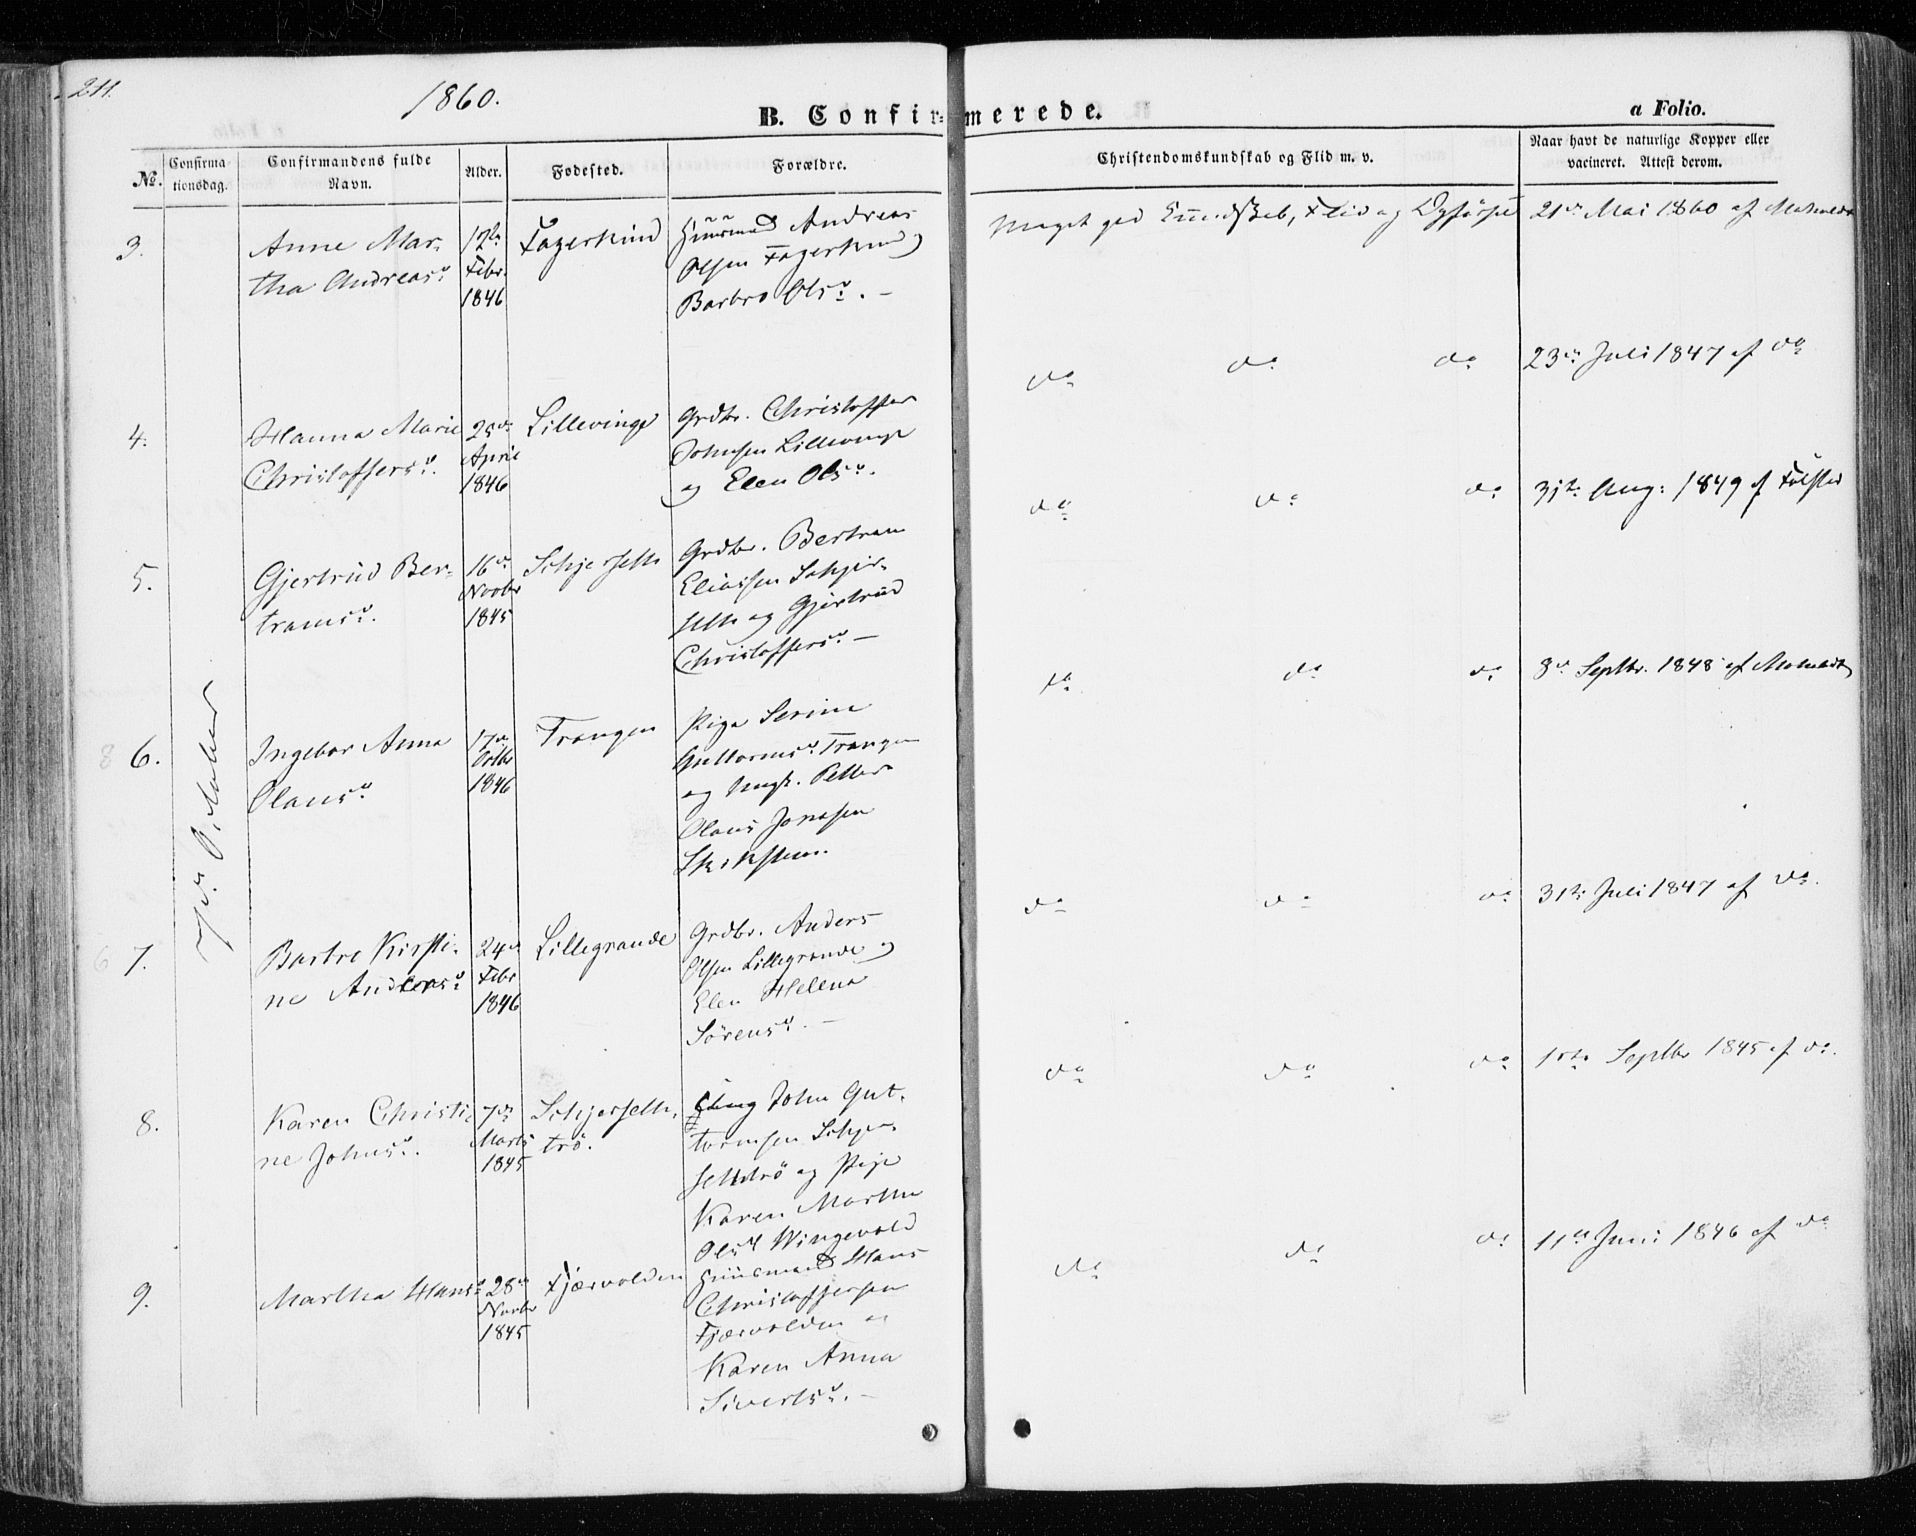 211.
1860.
B. Confirmerede.
a Folio.
No.
Confirmationsdag.
Confirmandens fulde Navn.
Alder.
Fødested.
Forældre.
Christendomskundskab og Flid m. v.
Naar havt de naturlige Kopper eller
vacineret. Attest derom.
7de October
3.
Anne Mar-
tha Andreasd.
12te
Febr.
1846
Fagerkind
Huusmand Andreas
Olsen Fagerkind
Barbro Olsd. -
Meget god Kundskab, Flid og Opførsel
21de Mai 1860 af
4.
Hanna Marie
Christoffersd.
25de
April
1846
Lillevinge
Grdbr. Christoffer
Johnsen Lillevinge
og Elen Olsd.
do do do
23de Juli 1847 af do
5.
Gjertrud Ber-
tramsd.
16de
Novbr
1845
Schjerseth
Grdbr. Bertram
Eliassen Schjer-
seth og Gjertrud
Christoffersd. -
do do do
31te Aug: 1849 af
6.
Ingebor Anna
Olausd.
17de
Octbr
1846
Trangen
Pige Serine
Guttormsd. Trangen
og Ungk. Petter
Olaus Jonasen
do do do
8de Septbr. 1848 af
7.
Barbro Kirsti-
ne Andersd.
24de
Febr
1846
Lillegrande
Grdbr. Anders
Olsen Lillegrande og
Elen Helena
Sørensd. -
do do do
31te Juli 1847 af do.
8.
Karen Christi-
ne Johnsd.
7de
Marts
1845
Schjerseth-
trø.
Ung John Gut-
tormsen Schjer-
sethtrø og Pige
Karen Martha
Olsd Wingevold
do do do
Septbr 1845 af do.
9.
Martha Hansd.
28de
Novbr
1845
Fjærvolden
Huusmand Hans
Christoffersen
Fjærvolden og
Karen Anna
Sivertsd. -
do do do
11te Juni 1846 af do